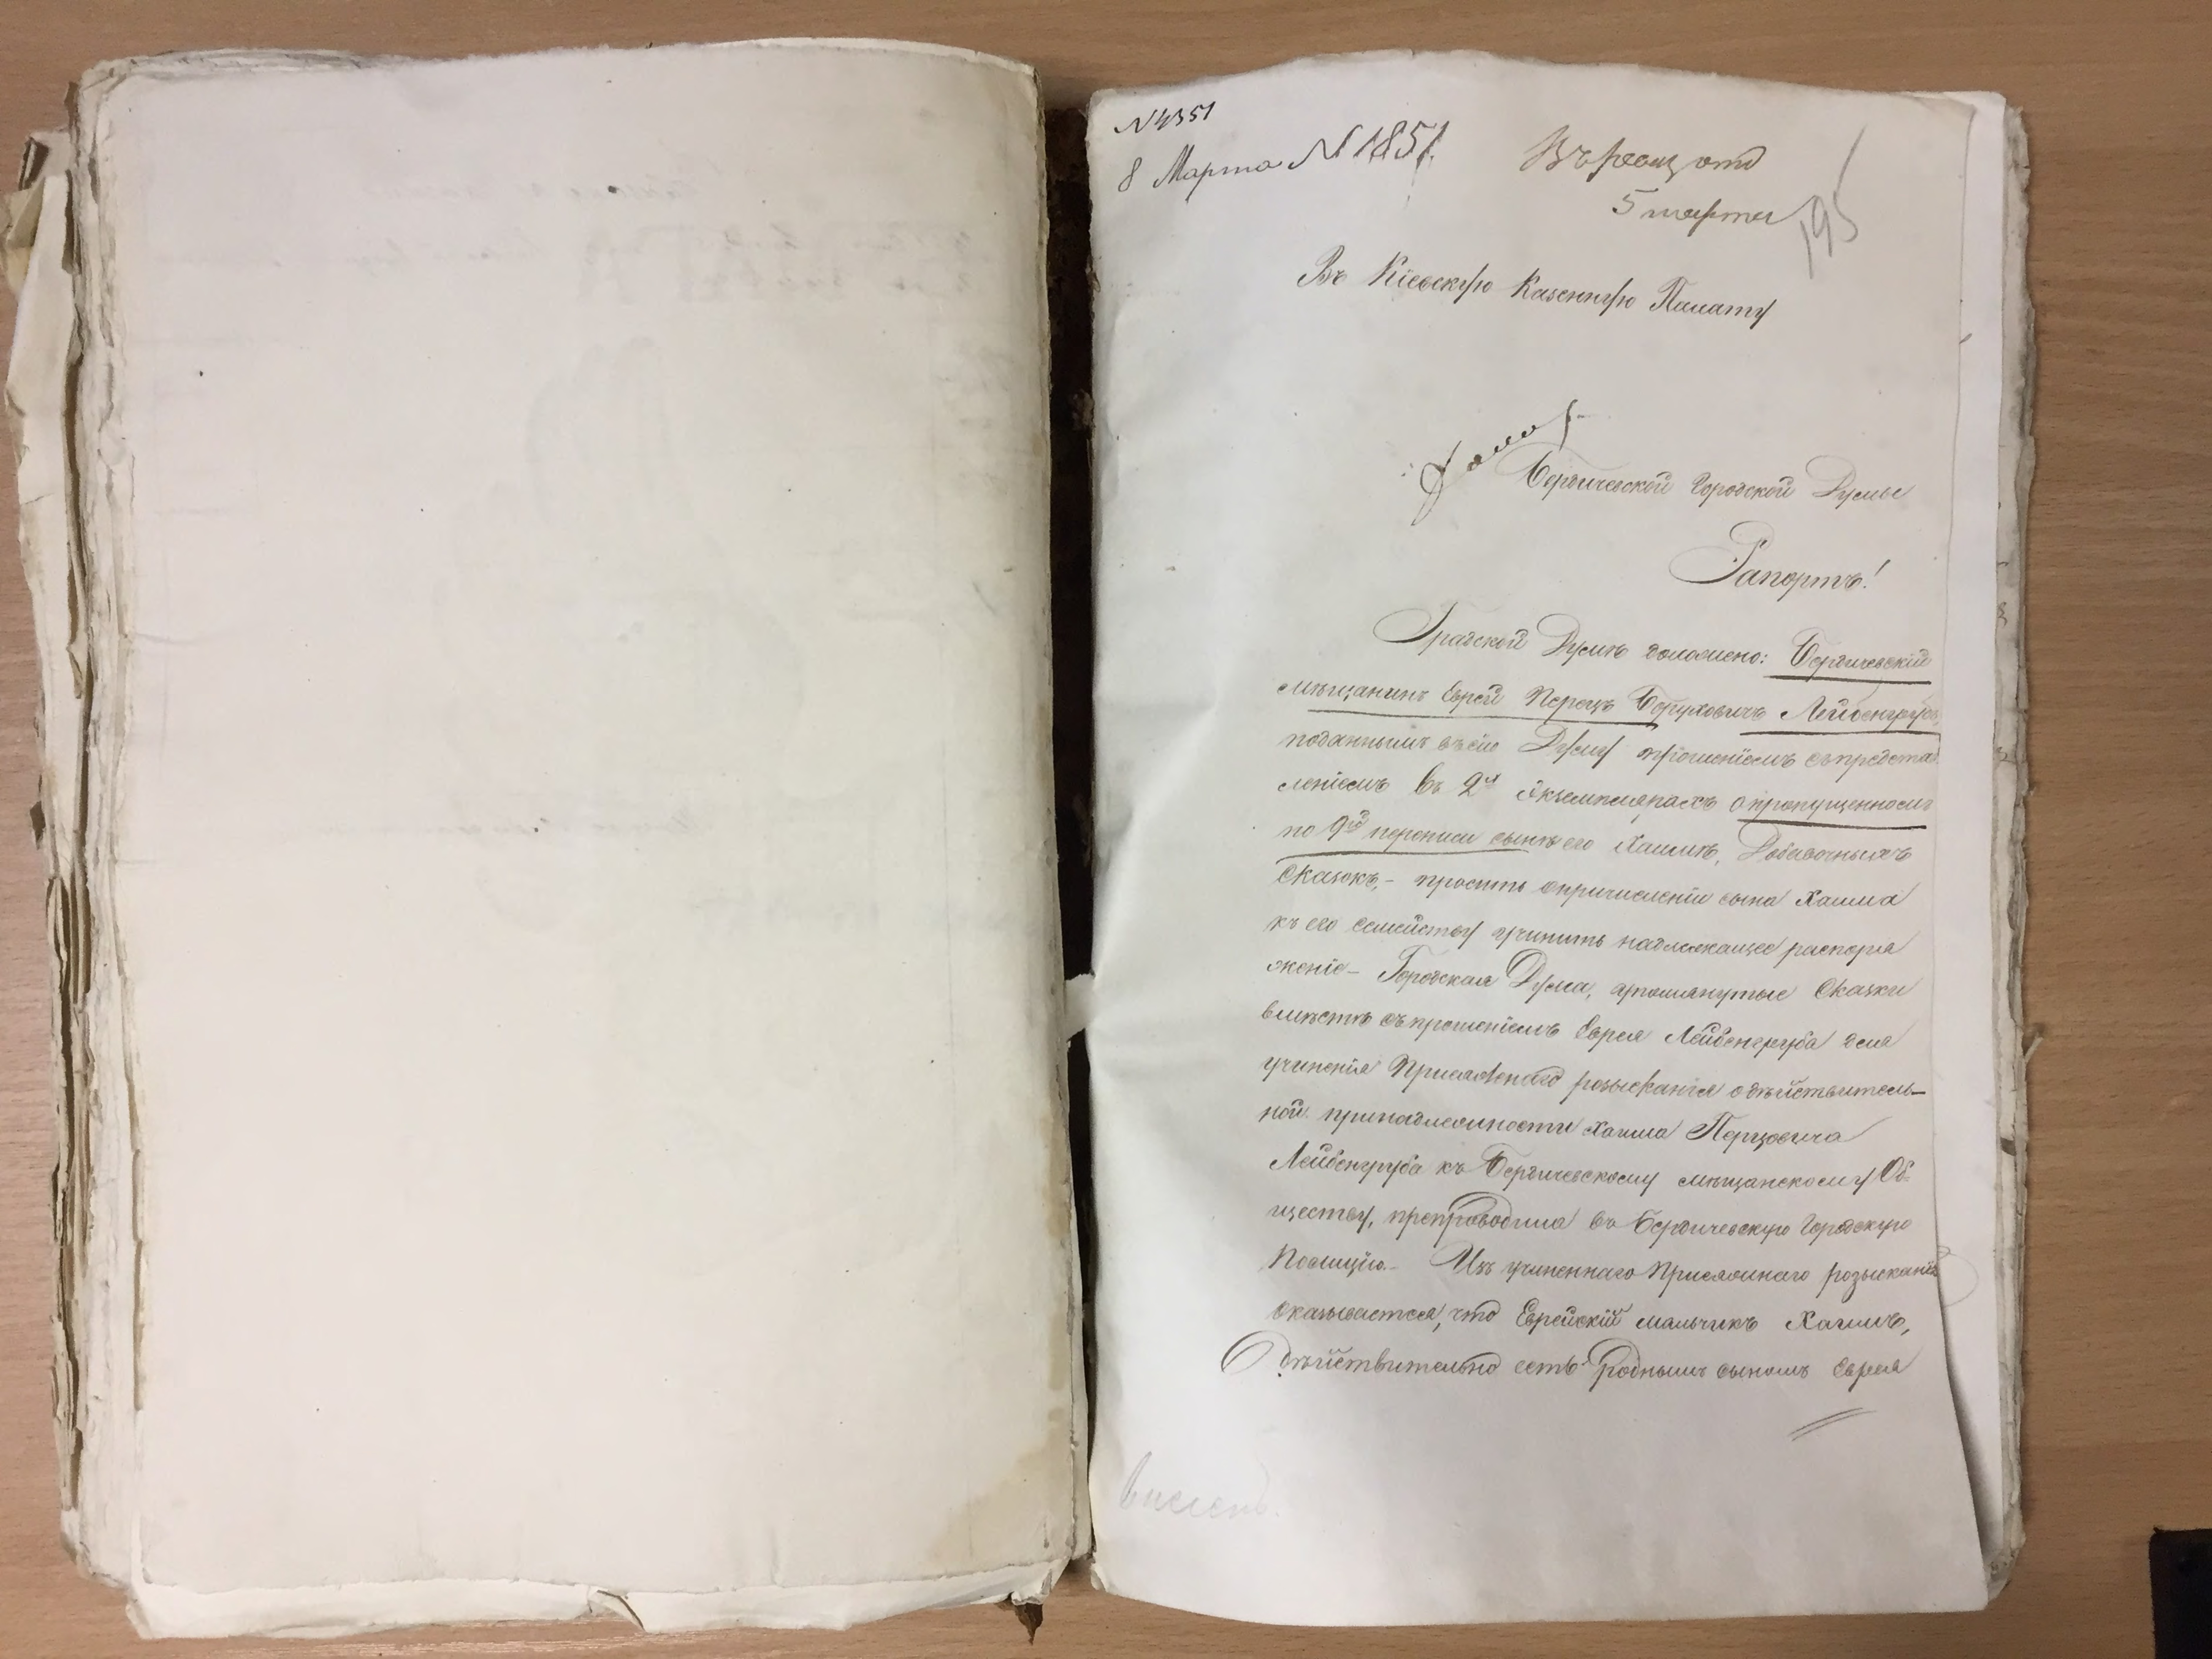 № 4351
8 Марта № 1851.
5 марта
195
Въ Кіевскую Казенную Палату
Бердичевской Городской Думы
Рапортъ!
Градской Думѣ доложено: Бердичевскій
мѣщанинъ Еврей Перецъ Боруховичъ Лейбенгрубъ
поданнымъ въ сію Думу прошеніемъ съ представ
леніемъ въ 2хъ экземплярахъ о пропущенномъ
по 9й переписи сынѣ его Хаимѣ, Добавочныхъ
Сказокъ, - проситъ о причисленіи сына Хаима
къ его семейству учинить надлежащее распоря
женіе - Городская Дума, упомянутые Сказки
вмѣстѣ съ прошеніемъ Еврея Лейбенгруба для
учиненія Присяжнаго розысканія о дѣйствитель-
ной принадлежности Хаима Перцовича
Лейбенгруба къ Бердичевскому мѣщанскому Об-
ществу, препроводила въ Бердичевскую Городскую
Полицію. - Изъ учиненнаго Присяжнаго розысканія
оказывается, что Еврейскій мальчикъ Хаимъ,
дѣйствительно есть Роднымъ сыномъ Еврея